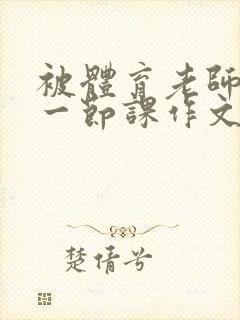 被體育老師
一節課作文
楚倩兮